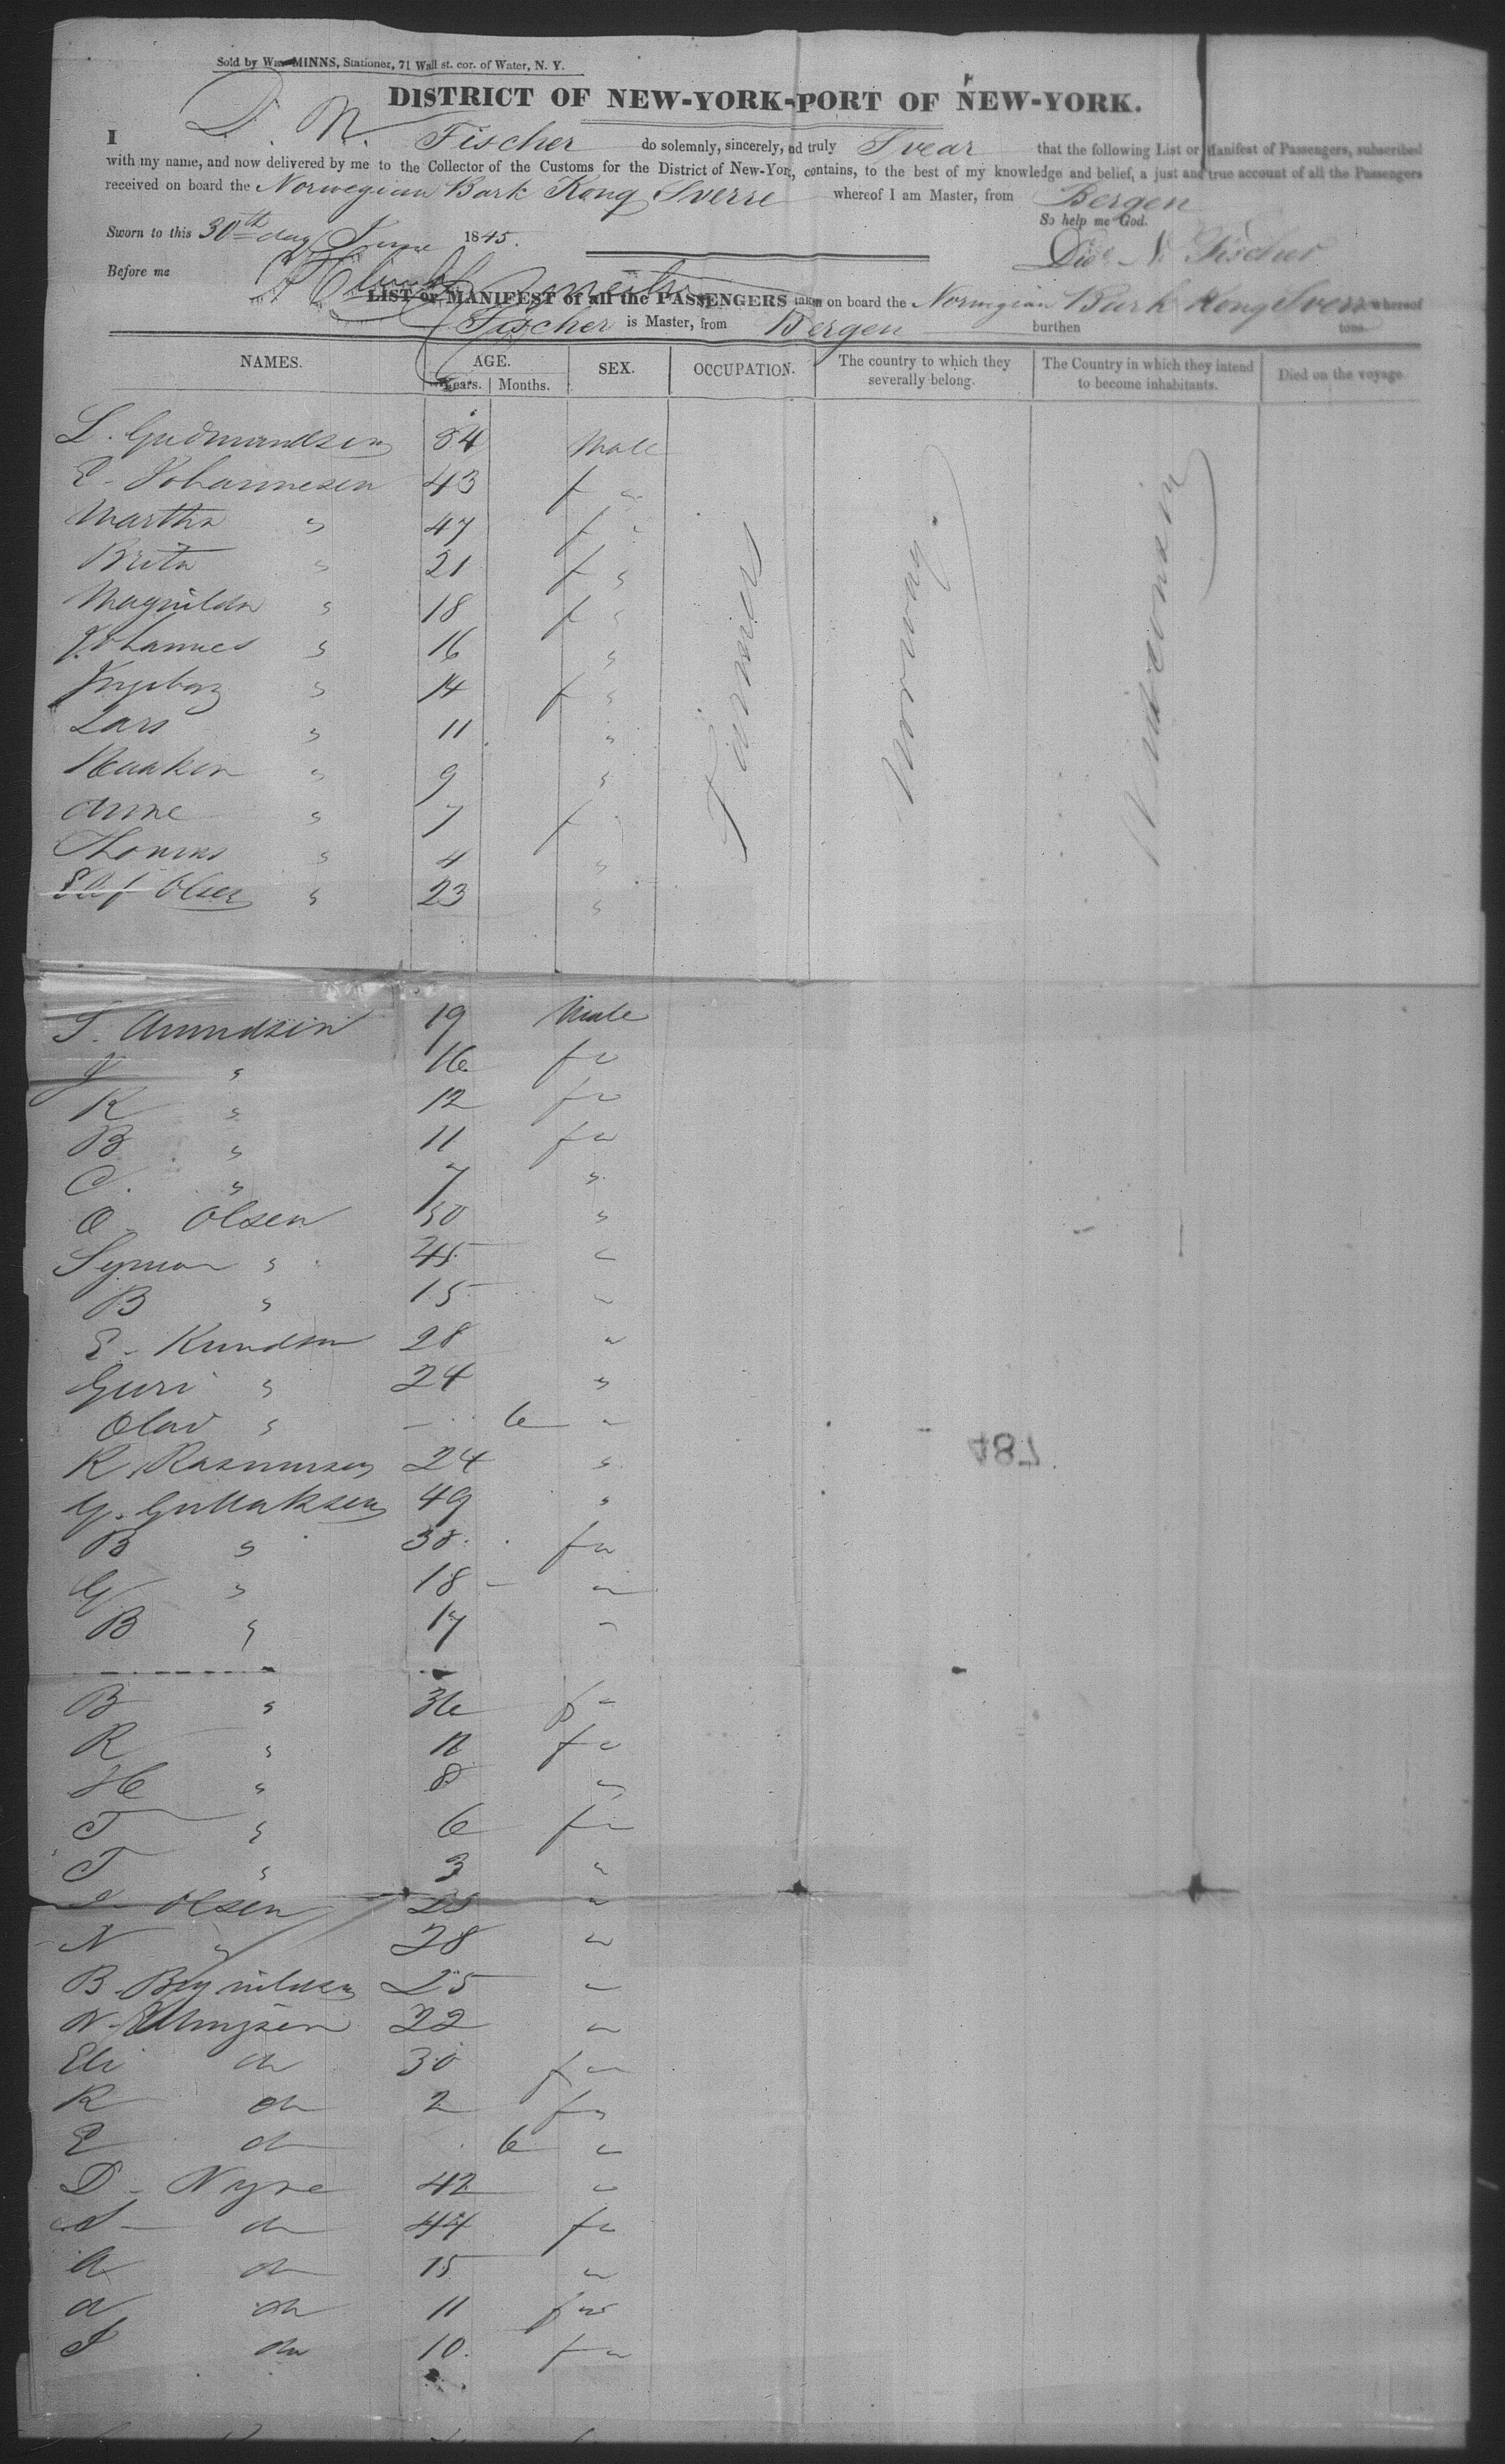 Sold by Wm MINNS, Stationer, 71 Wall st. cor. of Water, N. Y.
DISTRICT OF NEW-YORK-PORT OF NEW-YORK.
I D. N. Fischer do solemnly, sincerely, and truly Swear that the following List or Manifest of Passengers, subscribed
with my name, and now delivered by me to the Collector of the Customs for the District of New-York, contains, to the best of my knowledge and belief, a just and true account of all the Passengers
received on board the Norwegian Bark Kong Sverre whereof I am Master, from Bergen
So help me God.
Sworn to this 30th day June 1845.
N. Fischer
Before me
LIST or MANIFEST of all the PASSENGERS taken on board the Norwegian Bark Kong Sverre whereof
Fischer is Master, from Bergen burthen tons.
NAMES. AGE. SEX. OCCUPATION. The country to which they severally belong. The Country in which they intend to become inhabitants. Died on the voyage.
Years. Months.
Farmers
Norway.
Wisconsin
L. Gudmundsen 34 Male
E. Johannesen 43 f "
Martha " 47 f "
Brita " 21 f "
Magnilda " 18 f "
Johannes " 16 "
Ingeborg " 14 f "
Lars " 11 "
Haakon " 9 "
Anne " 7 f
Thomas " 4 "
Olsen " 23 "
S. Amundsen 19 Male
J " 16 f "
K " 12 f "
B " 11 f "
C. " 7 "
O. Olsen 50 "
Symon " 45 "
B " 15 "
E. Knudsen 28 "
Guri " 24 "
Olav " - 6 "
K. Rasmussen 24 "
G. Gullaksen 49 "
B " 38 f "
G " 18 "
B " 17 "
B " 36 f "
R " 11 f "
H " 8 "
T " 6 f "
T " 3 "
Olsen 25 "
N " 28 "
B. Brynildsen 25 "
N. Ellingsen 22 "
Eli do 30 f "
K do 2 f "
E do 6 "
D. Nyre 42 "
S do 44 f "
A do 15 "
A do 11 f "
S do 10 f "
487